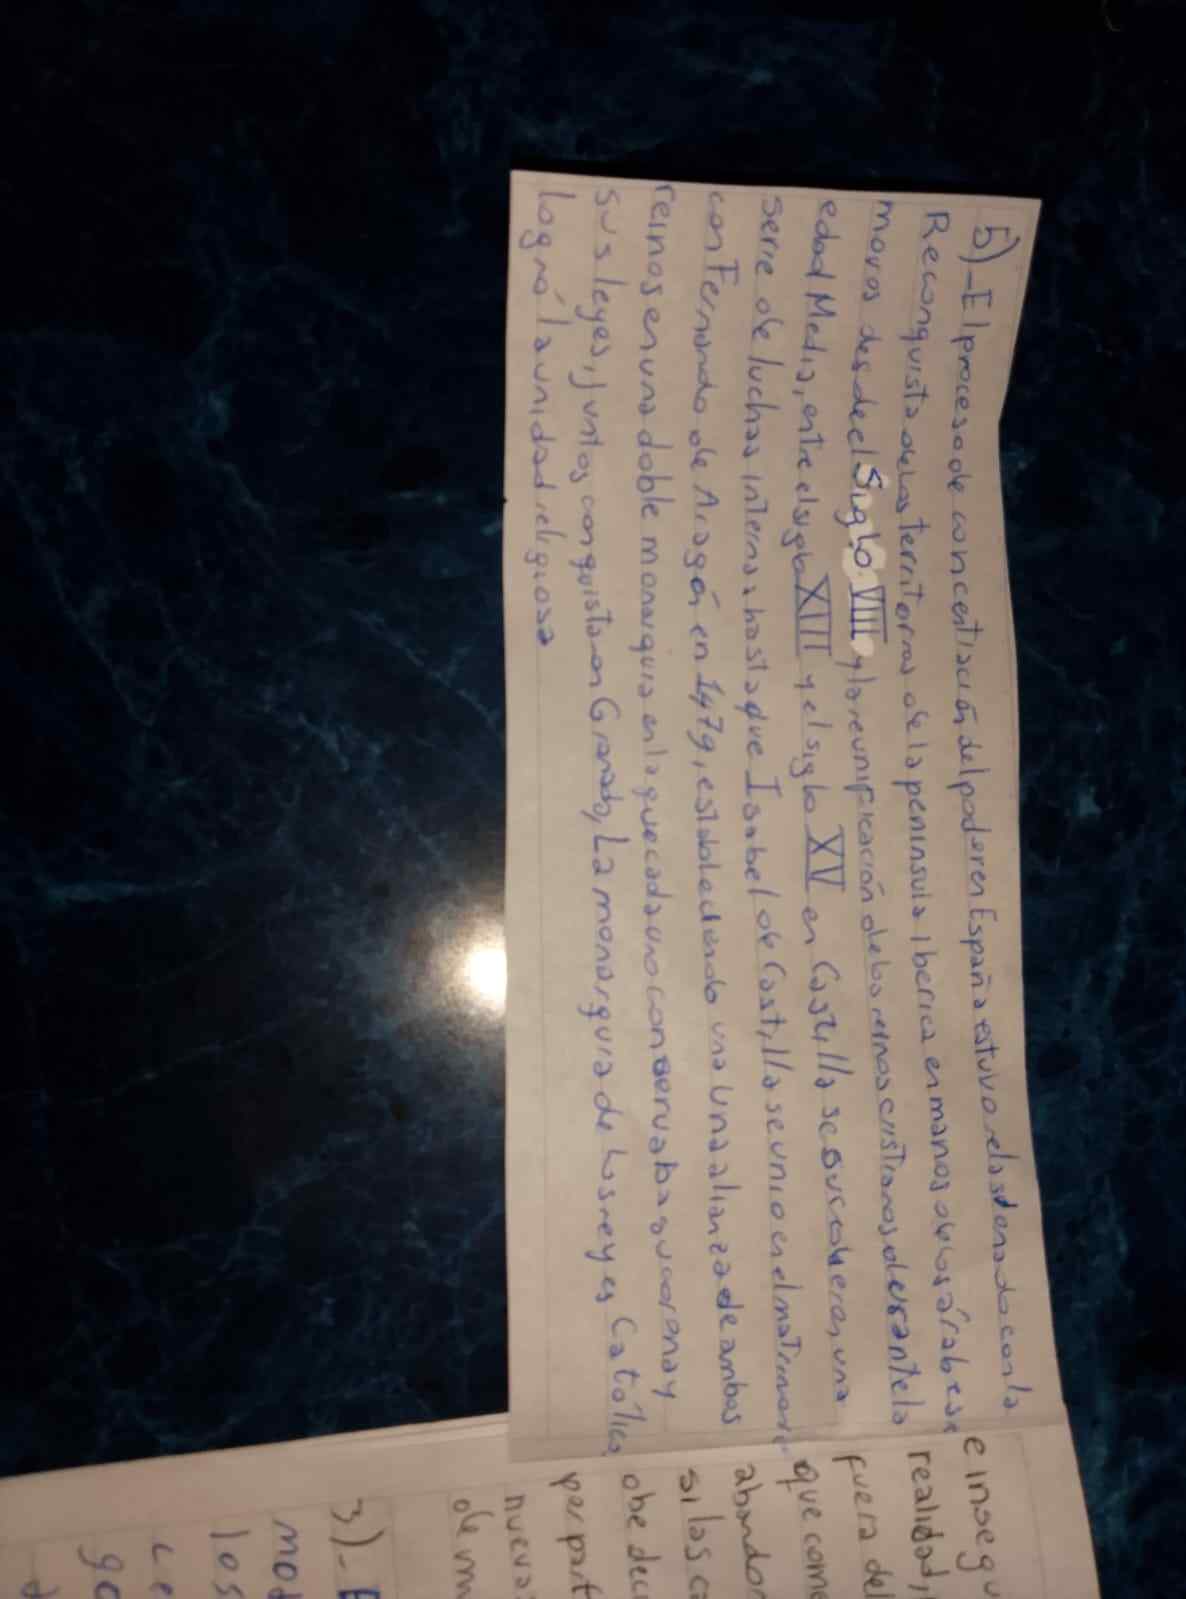 5)-El proceso de concentración del poder en España estuvo relacionado con la
Reconquista de los territorios de la peninsula iberica en manos de los árabes
moros desde el Siglo VIII y la reunificación de los reinos cristianos durante la
edad Media, entre el siglo XIII y el siglo XV en Castilla se sucedieron, una
serie de luchas internas hasta que Isabel de Castilla se unio en el matrimonio
con Fernando de Aragón en 1479, estableciendo una una alianza de ambos
reinos en una doble monarquia en la que cada uno conservaba su corona y
sus leyes, juntos conquistaron Granada, La monarquia de los reyes Católicos
logró la unidad religiosa
e insegu
realidad,
fuera del
que come
abandon
si las ca
obedeci
per part
nueva
de un
3)-E
mod
los
ce
go